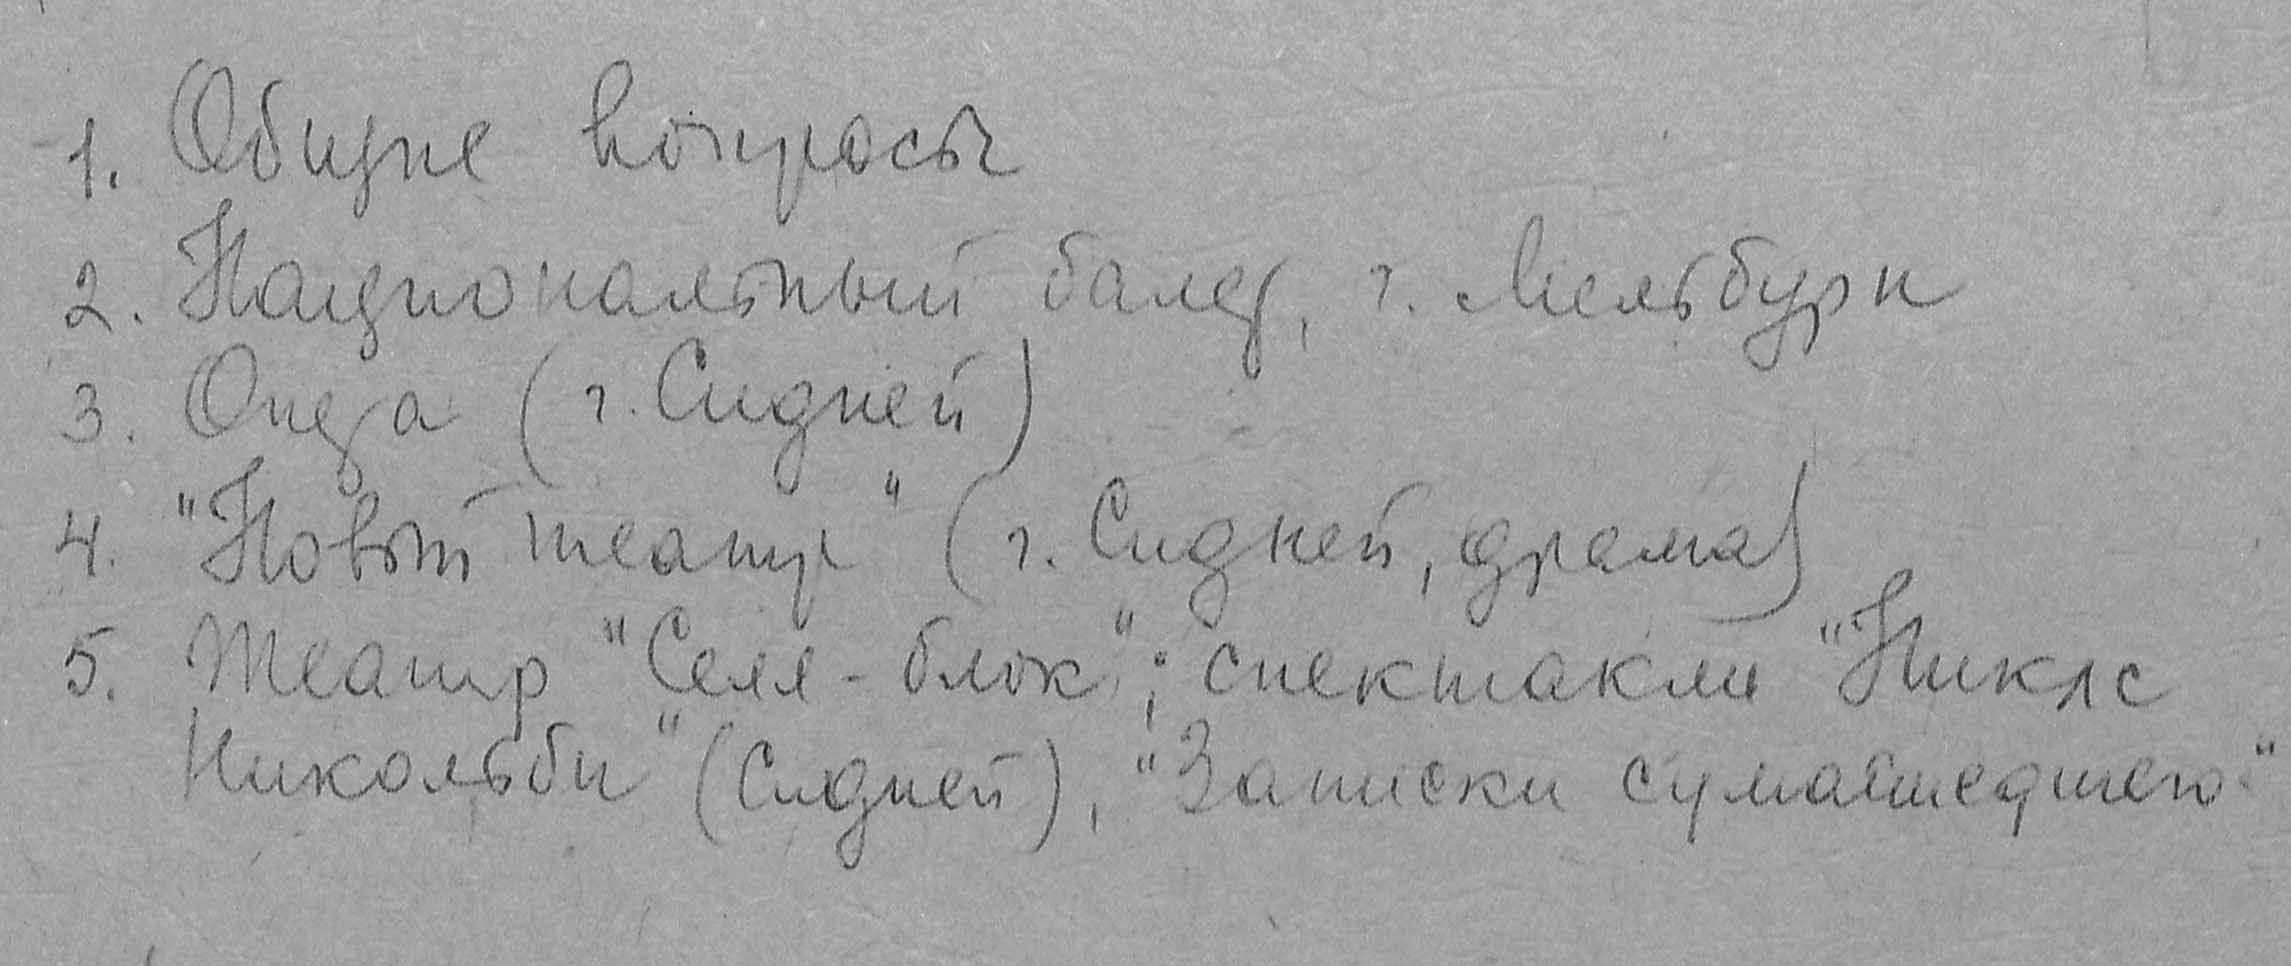 1. Общие вопросы
2. Национальный балет, г. Мельбурн
3. Опера (г. Сидней)
4. "Новый театр" (г. Сидней, драма)
5. Театр "Селл-блок"; спектакли "Никлс
Никольби" (Сидней), "Записки сумасшедшего"